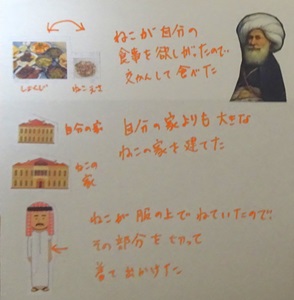 ねこが自分の
食事を欲しがたので
交かんして食べた
しょくじ
ねこえさ
自分の家
自分の家よりも大きな
ねこの家を建てた
ねこの
家
ねこが服の上でねていたので
その部分を切って
着て出かけた